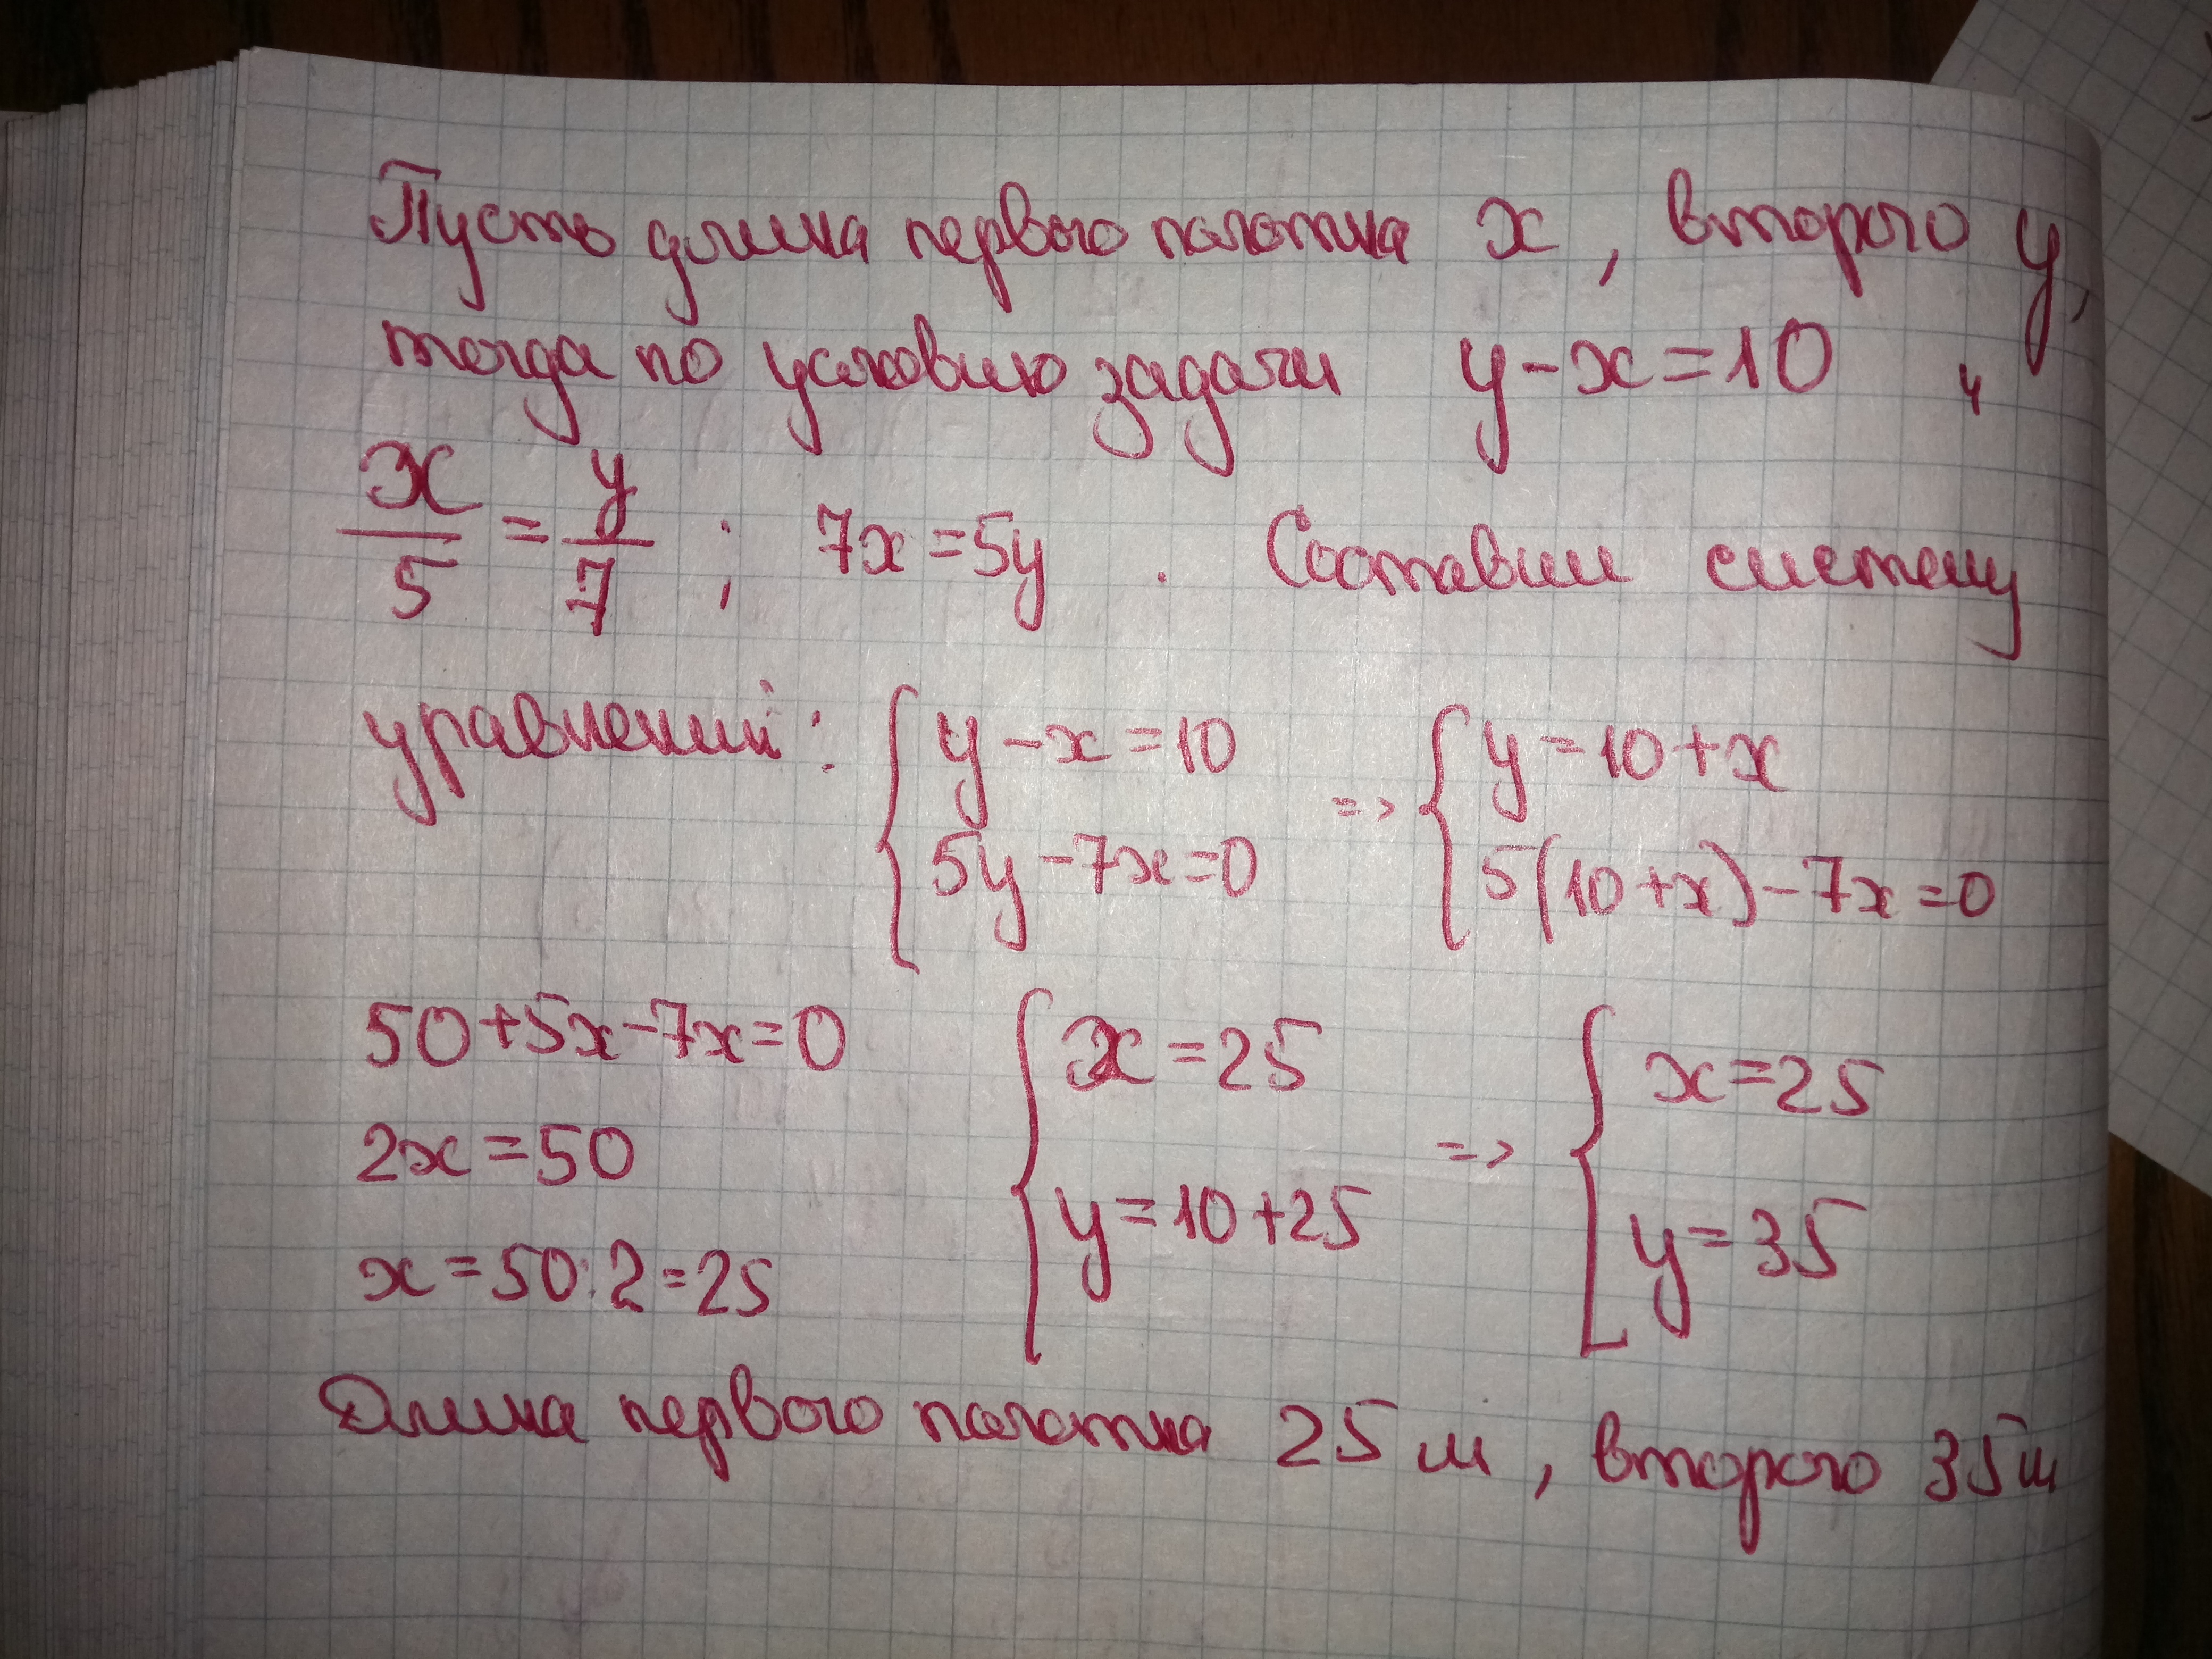 Пусть длина первого полотна x, второго y,
тогда по условию задачи y-x=10, и
x/5 = y/7 ; 7x=5y. Составим систему
уравнений: { y-x=10 => { y=10+x
{ 5y-7x=0 { 5(10+x)-7x=0
50+5x-7x=0 { x=25 { x=25
2x=50 =>
x=50:2=25 { y=10+25 { y=35
Длина первого полотна 25 м, второго 35 м